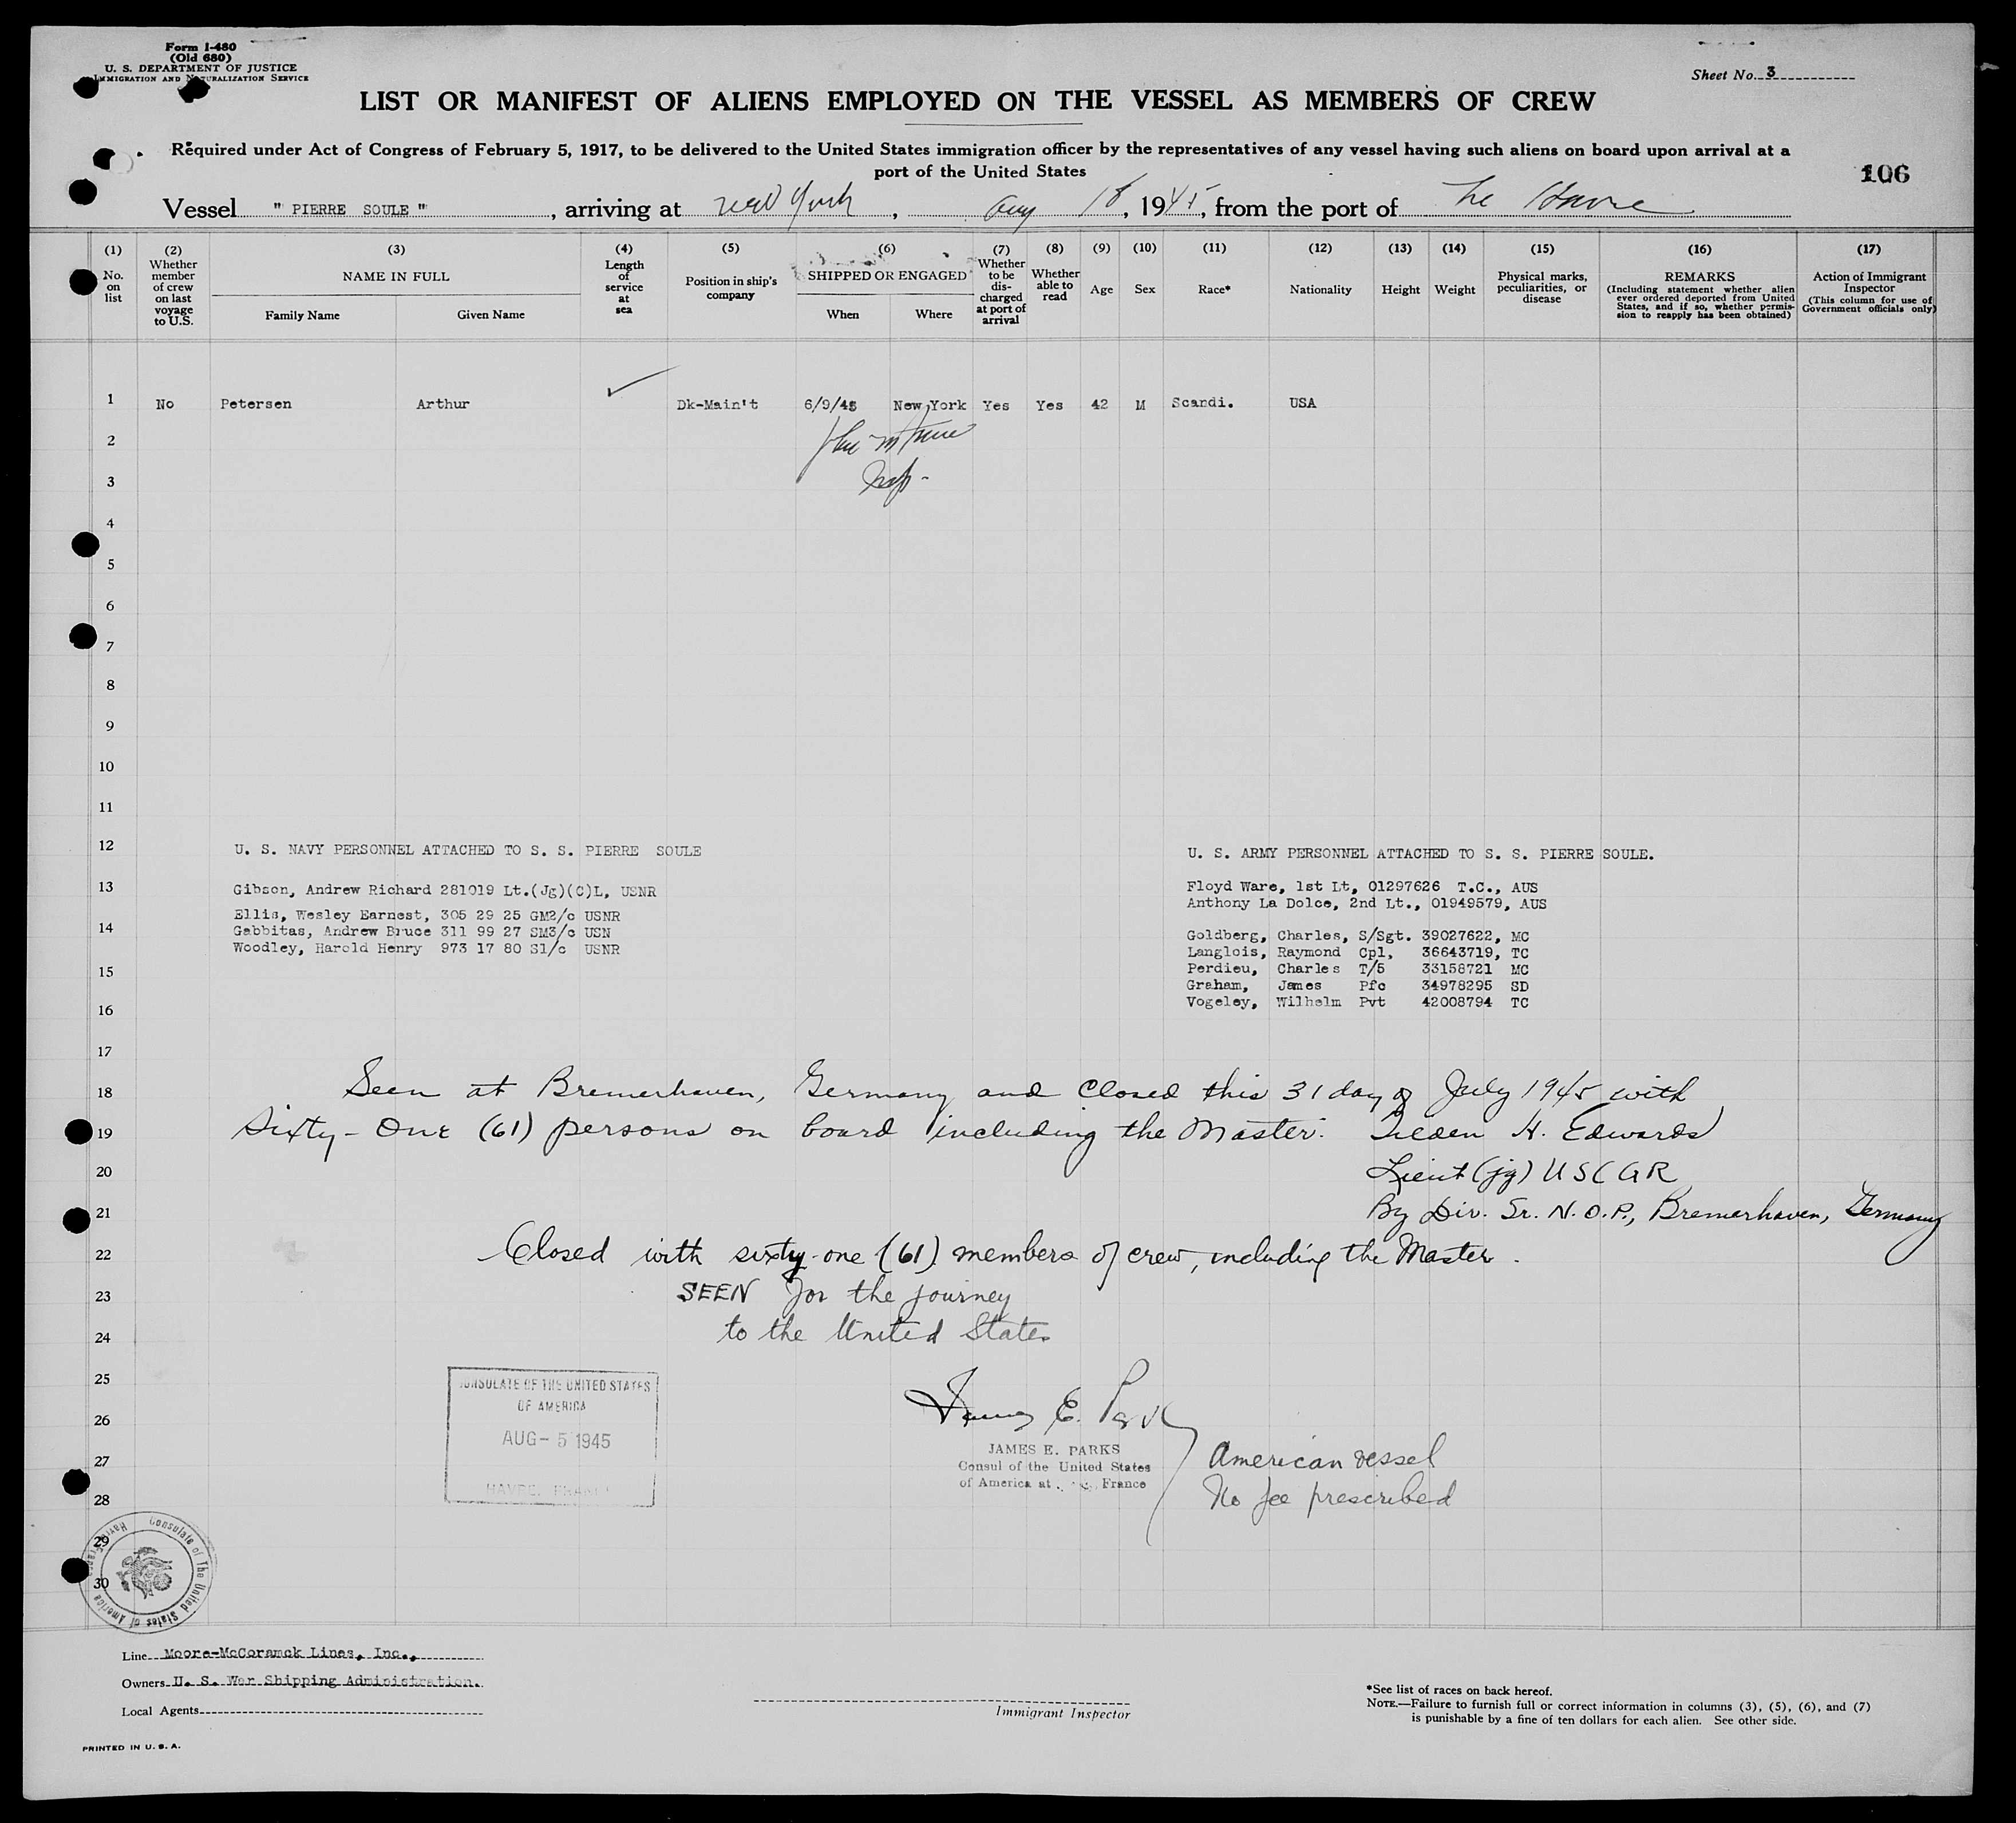 Form I-480
(Old 680)
U. S. DEPARTMENT OF JUSTICE
IMMIGRATION AND NATURALIZATION SERVICE
Sheet No. 3
LIST OR MANIFEST OF ALIENS EMPLOYED ON THE VESSEL AS MEMBERS OF CREW
Required under Act of Congress of February 5, 1917, to be delivered to the United States immigration officer by the representatives of any vessel having such aliens on board upon arrival at a
port of the United States
106
Vessel " PIERRE SOULE ", arriving at New York, Aug 18, 1945, from the port of Le Havre
(1) No. on list
(2) Whether member of crew on last voyage to U.S.
(3) NAME IN FULL
Family Name Given Name
(4) Length of service at sea
(5) Position in ship's company
(6) SHIPPED OR ENGAGED
When Where
(7) Whether to be discharged at port of arrival
(8) Whether able to read
(9) Age
(10) Sex
(11) Race*
(12) Nationality
(13) Height
(14) Weight
(15) Physical marks, peculiarities, or disease
(16) REMARKS
(Including statement whether alien ever ordered deported from United States, and if so, whether permission to reapply has been obtained)
(17) Action of Immigrant Inspector
(This column for use of Government officials only)
1 No Petersen Arthur ✓ Dk-Main't 6/9/45 New York Yes Yes 42 M Scandi. USA
2
3 Insp-
4
5
6
7
8
9
10
11
12
13
14
15
16
17
18
19
20
21
22
23
24
25
26
27
28
29
30
U. S. NAVY PERSONNEL ATTACHED TO S. S. PIERRE SOULE
Gibson, Andrew Richard 281019 Lt.(Jg)(C)L, USNR
Ellis, Wesley Earnest, 305 29 25 GM2/c USNR
Gabbitas, Andrew Bruce 311 99 27 SM3/c USN
Woodley, Harold Henry 973 17 80 S1/c USNR
U. S. ARMY PERSONNEL ATTACHED TO S. S. PIERRE SOULE.
Floyd Ware, 1st Lt, 01297626 T.C., AUS
Anthony La Dolce, 2nd Lt., 01949579, AUS
Goldberg, Charles, S/Sgt. 39027622, MC
Langlois, Raymond Cpl, 36643719, TC
Perdieu, Charles T/5 33158721 MC
Graham, James Pfc 34978295 SD
Vogeley, Wilhelm Pvt 42008794 TC
Seen at Bremerhaven, Germany and Closed this 31 day of July 1945 with
Sixty-One (61) persons on board including the Master. Tilden H. Edwards
Lieut (jg) USCGR
By Dir. Sr. N.O.P., Bremerhaven, Germany
Closed with sixty-one (61) members of crew, including the Master.
SEEN for the journey
to the United States
CONSULATE OF THE UNITED STATES
OF AMERICA
AUG - 5 1945
HAVRE, FRANCE
James E. Parks
JAMES E. PARKS
Consul of the United States
of America at France
American vessel
No fee prescribed
Consulate of The United States of America Havre France
Line Moore-McCoramck Lines, Inc.,
Owners U. S. War Shipping Administration.
Local Agents
Immigrant Inspector
*See list of races on back hereof.
NOTE.—Failure to furnish full or correct information in columns (3), (5), (6), and (7)
is punishable by a fine of ten dollars for each alien. See other side.
PRINTED IN U. S. A.